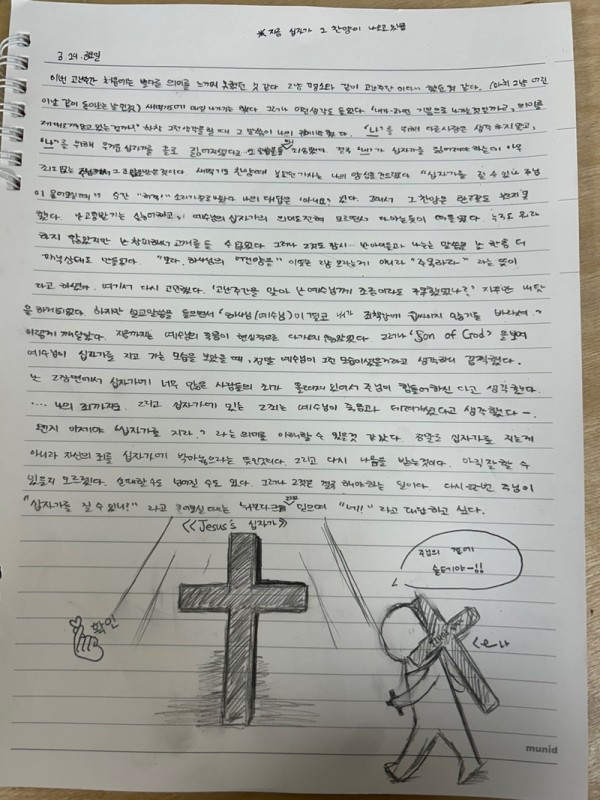 ※ 지금 십자가 그 찬양이 나오고 있음
3.29. 금요일
이번 고난주간 처음에는 별다른 의미를 느끼지 못했던 것 같다. 그냥 평소와 같이 고난주간이다 했던 것 같다. (아니 그냥 여린
이날 같이 돌아오는 날 같이) 새벽기도에 매일 나가기는 했다. 그러다 이런생각이 들었다. '내가 어떤 기분으로 나가는 것일까?, 의미를
제대로 알고 있는걸까?' 하창 그런생각을 할 때 그 말씀이 나의 했다. "나"를 위해 다른사람은 생각 하지않고,
"나"를 위해 무거운 십자가를 홀로 짊어지셨다고 말씀을 하셨다. 결국 "내"가 십자가를 짊어져야 하는데 아무
죄도 없는 주님께서 그 고난받은 것이다. 새벽기도 찬양에 나의 양심을 건드렸다. "십자가를 질 수 있나 주님
이 물어보실때" 순간 소리가 나왔다. 나의 대답은 '아니요' 였다. 그래서 그 찬양은 한구절도 부르지 못
했다. 난 고통받기는 싫어하고, 예수님의 십자가의 의미도 전혀 모르면서 아는듯이 누구도 뭐라
하지 않았지만 난 창피해서 고개를 들 수 없었다. 그러나 그것도 잠시 반 아이들과 나누는 말씀을 난 한층 더
상태로 만들었다. "보라, 하나님의 어린양을" 이뜻은 그냥 보라는게 아니라 "주목하라" 라는 뜻이
라고 하셨다. 여기서 다시 고민했다. '고난주간을 맞아 난 예수님께 조금이라도 주목했었나?' 지루한
을 하게되었다. 하지만 설교말씀을 들으면서 '하나님(예수님)이 결코 내가 죄책감에 빠지지 않기를 바라셔.'
이렇게 깨달았다. 지금까지는 예수님의 죽음이 현실적으로 다가오지 않았었다. 그러나 'Son of God'을 보며
예수님이 십자가를 지고 가는 모습을 보았을 때, 정말 예수님이 그런 모습이셨을거라고 생각하니 끔찍했다.
난 그장면에서 십자가에 너무 많은 사람들의 죄가 몰려져 있어서 주님이 힘들어하신다고 생각했다.
.... 나의 죄까지도. 그리고 십자가에 있는 그 죄는 예수님이 죽음과 데려가셨다고 생각했다-.
왠지 이제야 '십자가를 지라.' 라는 의미를 이해할 수 있을것 같았다. 정말로 십자가를 지는게
아니라 자신의 죄를 십자가에 박아놓으라는 뜻인것이다. 그리고 다시 나음을 받는것이다. 아직 잘할 수
있을지 모르겠다. 실패할 수도 넘어질 수도 있다. 그러나 그것은 결국 해야하는 일이다. 다시한번 주님이
"십자가를 질 수 있니?" 라고 물어보실 때에는 믿으며 "네!!" 라고 대답하고 싶다.
<<Jesus's 십자가>>
주님의 곁에
설테야-!!
확인
<-나
munid